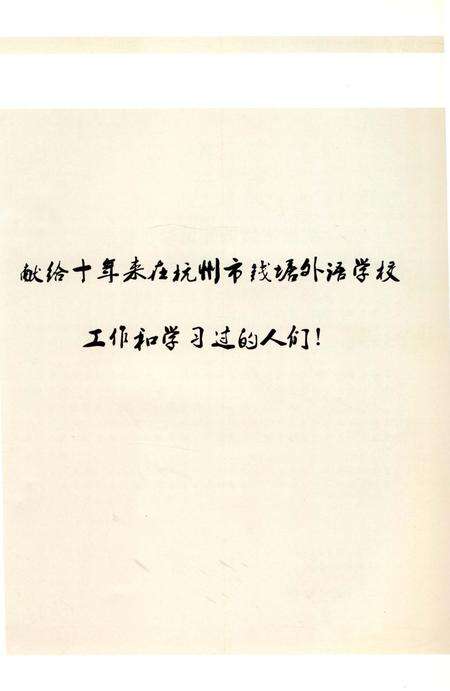 献给十年来在杭州市钱塘外语学校
工作和学习过的人们！